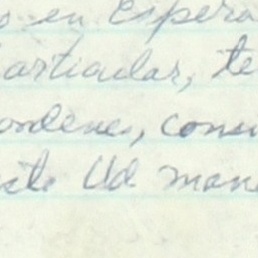 o en Espera
articular, te
ordenes, cons
ste Ud mane